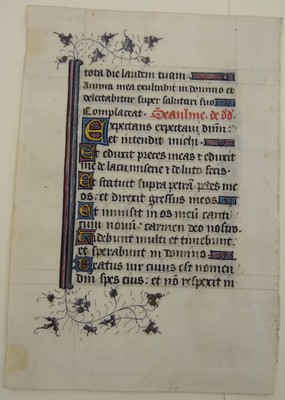 tota die laudem tuam.
Anima mea exultabit in domino et
delectabitur super salutari suo
Complaceat. Seaulme. de dd.
Expectans expectavi dnm:
et intendit michi.
Et eduxit preces meas: eduxit
me de lacu miserie: de luto fecis.
Et statuit supra petra pedes me
os: et direxit gressus meos.
Et immisit in os meu canti
cum novu: carmen deo nostro.
Videbunt multi et timebunt:
et sperabunt in domino.
Beatus vir cuius est nomen
dni spes eius: et no respexit in